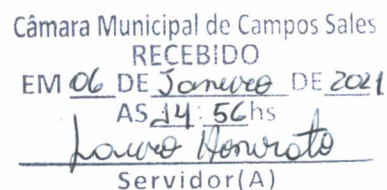 Câmara Municipal de Campos Sales
RECEBIDO
EM 06 DE Janeiro DE 2021
AS 14:56hs
Lauro Honorato
Servidor(A)